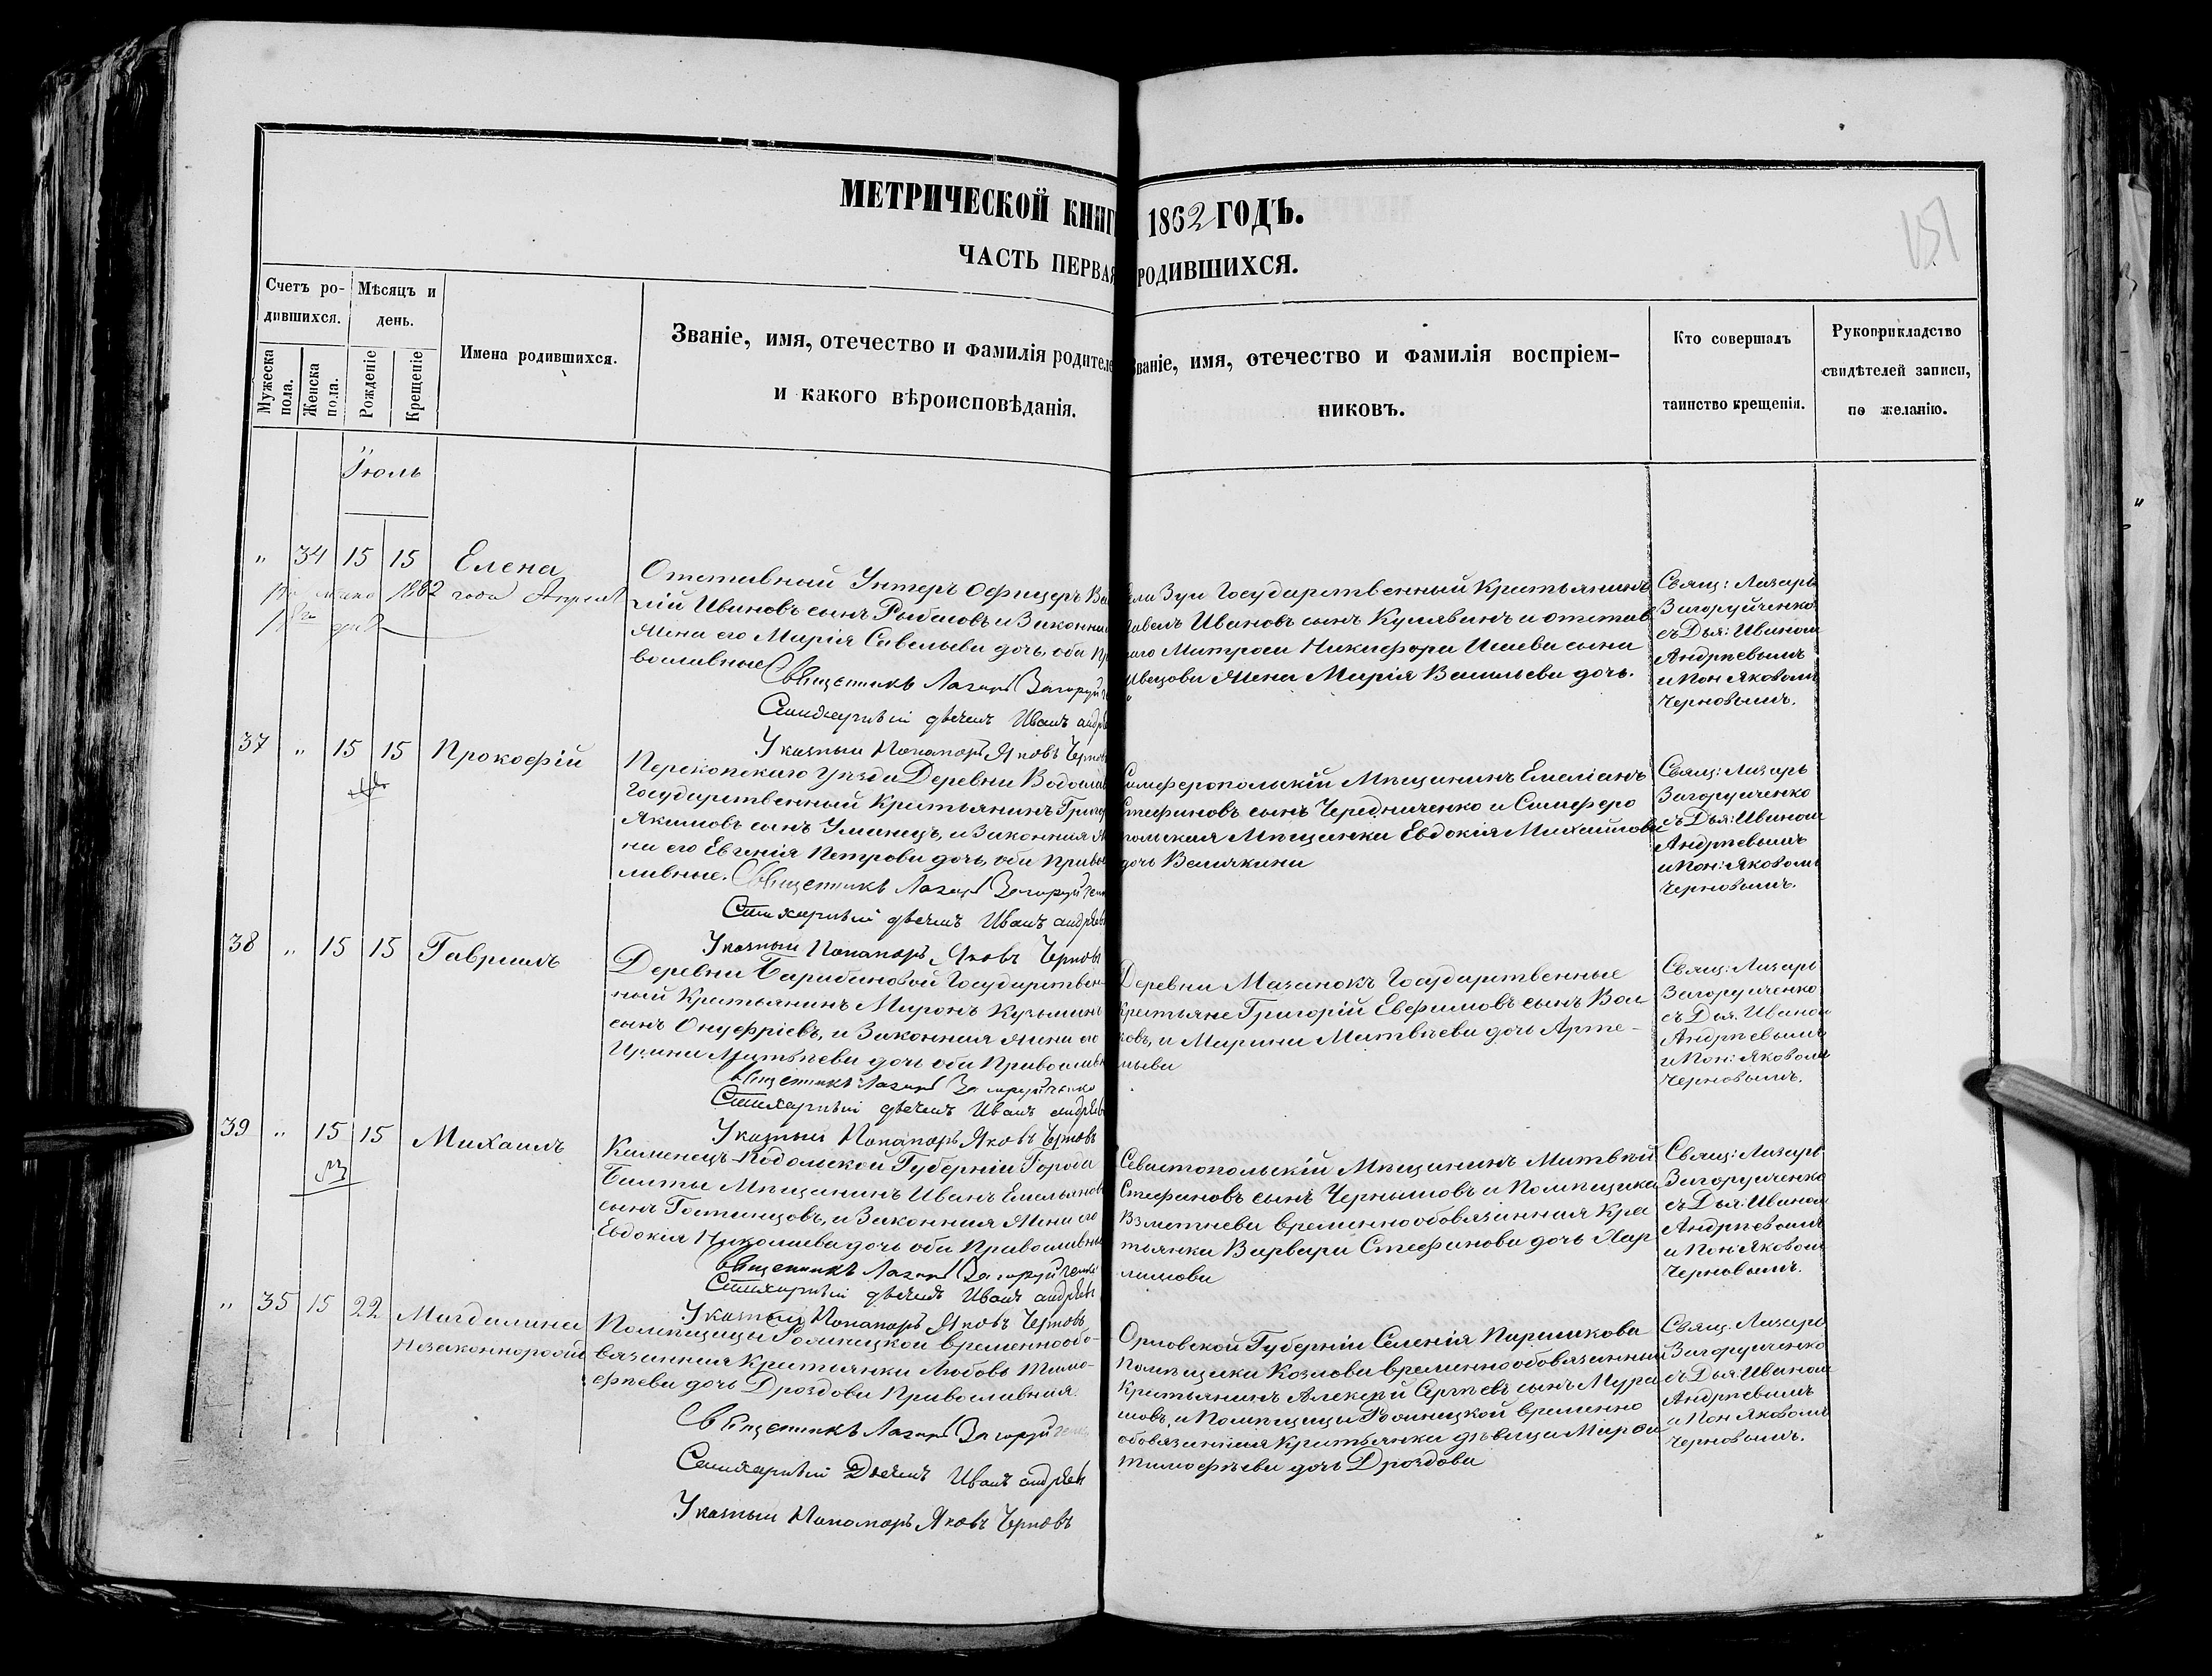 МЕТРИЧЕСКОЙ КНИГ
1862 ГОДЪ.
151
ЧАСТЬ ПЕРВАЯ
РОДИВШИХСЯ.
Счетъ ро-
дившихся.
Мѣсяцъ и
день.
Мужеска
пола.
Женска
пола.
Рожденіе
Крещеніе
Имена родившихся.
Званіе, имя, отечество и фамилія родителе
и какого вѣроисповѣданія.
Званіе, имя, отечество и фамилія воспріем-
никовъ.
Кто совершалъ
таинство крещенія.
Рукоприкладство
свидѣтелей записи,
по желанію.
Іюль
" 34 15 15 Елена
1862 года Апреля
Отставный Унтеръ Офицеръ Ва
лій Ивановъ сынъ Рыбаловъ и Законна
Жена его Марія Савельева дочь, оба Пр
вославные
Священникъ Лазарь Загоруй
Стихарный дьячекъ Иванъ андрѣ
Указный Понамарь Яковъ Чернов
Села Зуи Государственный Крестьянинъ
Павелъ Ивановъ сынъ Кулявинъ и отстав
наго Матроса Никифора Исаева сына
Швецова Жена Марія Васильева дочь.
Свящ: Лазарь
Загоруйченко
съ Дья: Иваном
Андреевымъ
и Пон Яковомъ
Черновымъ.
37 " 15 15 Прокофій
Перекопскаго Уѣзда Деревни Водосла
Государственный Крестьянинъ Григо
Якимовъ сынъ Уманецъ, и Законная Ж
на его Евгенія Петрова дочь, оба Право
лавные. Священникъ Лазарь Загоруйчен
Стихарный дьячекъ Иванъ андрѣев
Указный Понамарь Яковъ Черновъ
Симферопольскій Мѣщанинъ Емеліанъ
Стефановъ сынъ Чередниченко и Симферо
польская Мѣщанка Евдокія Михайлова
дочь Велижкина
Свящ: Лазарь
Загоруйченко
съ Дья: Иваном
Андреевымъ
и Пон: Яковомъ
Черновымъ.
38 " 15 15 Гавріилъ
Деревни Барабановой Государствен-
ный Крестьянинъ Миронъ Кузьминъ
сынъ Онуфріевъ, и Законная Жена его
Ирина Матвѣева дочь оба Православн
Священникъ Лазарь Загоруйченко
Стихарный дьячекъ Иванъ андрѣев
Указный Понамарь Яковъ Черновъ
Деревни Мазанокъ Государственные
Крестьяне Григорій Евфимовъ сынъ Вол
ковъ, и Марина Матвѣева дочь Арте-
мьева
Свящ: Лазарь
Загоруйченко
съ Дья. Иваном
Андреевымъ
и Пон: Яковомъ
Черновымъ.
39 " 15 15 Михаилъ
Каменецъ-Подольской Губерніи Города
Балты Мѣщанинъ Иванъ Емельяновъ
сынъ Гостинцовъ, и Законная Жена его
Евдокія Николаева дочь оба Православны
Священникъ Лазарь Загоруйченко
Стихарный дьячекъ Иванъ андрѣев
Указный Понамарь Яковъ Черновъ
Севастопольскій Мѣщанинъ Матвѣй
Стефановъ сынъ Чернышовъ и Помѣщика
Взметнева временнообовязанная Кре
тьянка Варвара Стефанова дочь Хар
ламова
Свящ: Лазарь
Загоруйченко
съ Дья: Иваном
Андреевымъ
и Пон: Яковомъ
Черновымъ.
" 35 15 22 Магдалина
Незаконнорожд
Помѣщицы временнообо-
вязанная Крестьянка Любовь Тимо-
фѣева дочь Дроздова Православная.
Священникъ Лазарь Загоруйчен
Стихарный Дьячекъ Иванъ андрѣев
Указный Понамарь Яковъ Черновъ
Орловской Губерніи Селенія Паршикова
Помѣщика Козлова временнообовязанный
Крестьянинъ Алексѣй Сергѣевъ сынъ Мура
шовъ, и Помѣщицы временно
обовязанная Крестьянка дѣвица Марфа
Тимофѣева дочь Дроздова
Свящ. Лазарь
Загоруйченко
съ Дья: Иваном
Андреевымъ
и Пон Яковомъ
Черновымъ.